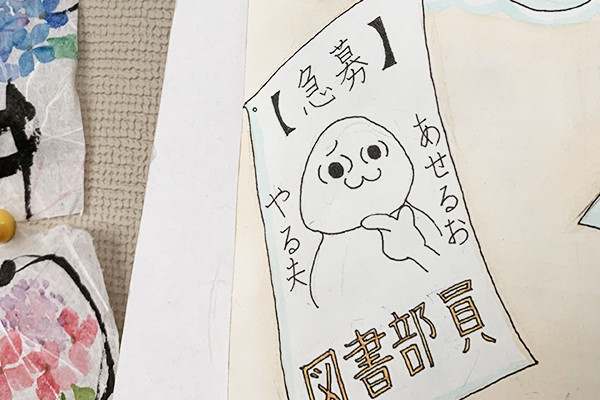 【急募】
あせるお
やる夫
図書部員